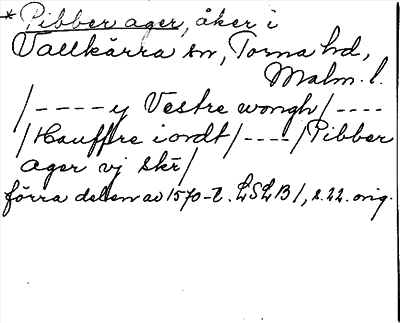 * Pibber ager, åker i
Vallkärra sn, Torna hd,
Malm. l.
/---- y Vestre wongh/----
/Hauffre iordt/----/Pibber
ager vj skr/
förra delen av 1570-t. LSLB1, s. 22. orig.